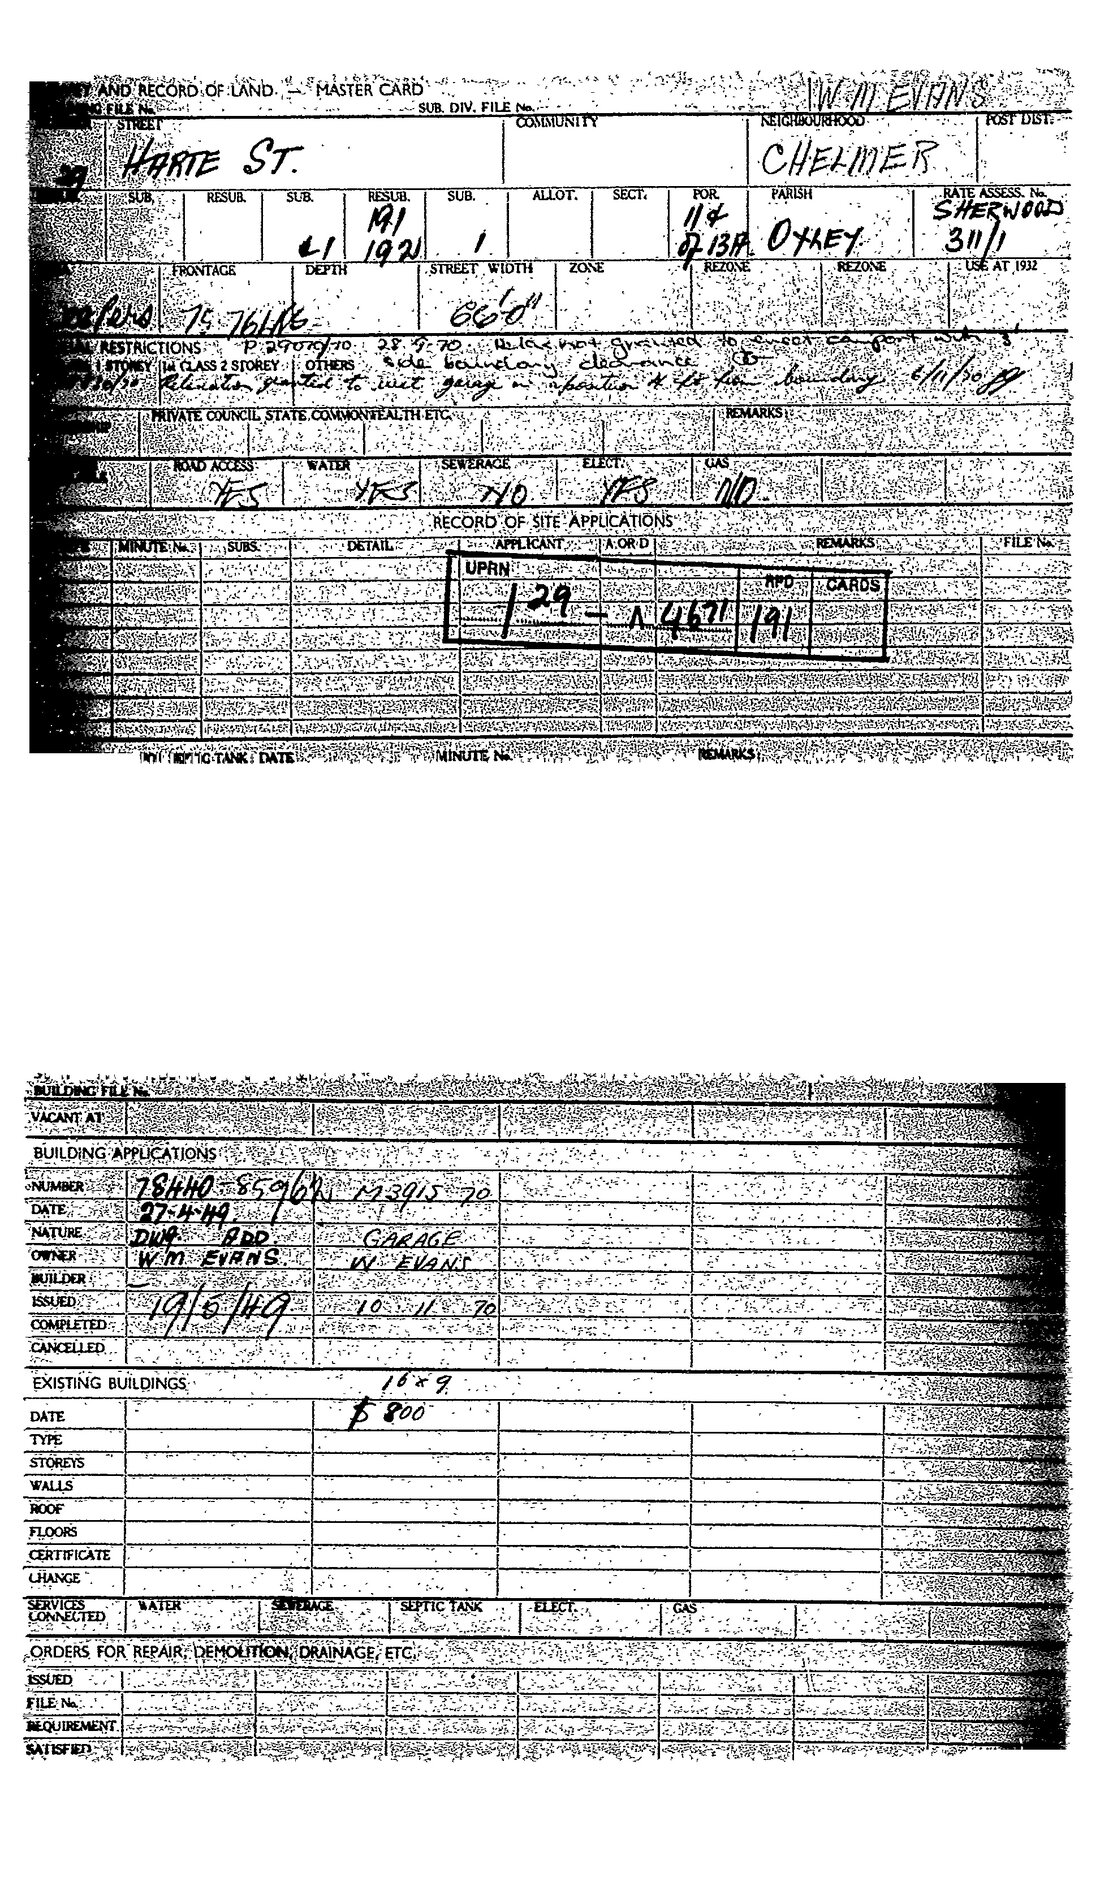 AND RECORD OF LAND — MASTER CARD
W M EVANS
FILE No. SUB. DIV. FILE No.
STREET COMMUNITY NEIGHBOURHOOD POST DIST.
HARTE ST. CHELMER
29
SUB. RESUB. SUB. RESUB. SUB. ALLOT. SECT. POR. PARISH RATE ASSESS. No.
191 11 & SHERWOOD
L1 192 1 of 13A OXLEY 311/1
FRONTAGE DEPTH STREET WIDTH ZONE REZONE REZONE USE AT 1932
Pers 75.76LKS 66'0"
RESTRICTIONS P 29070/70 28.9.70 Relax not granted to erect carport with 3'
STOREY 1st CLASS 2 STOREY OTHERS side boundary clearance
Relaxation granted to erect garage in position 4 ft from boundary 6/11/70
PRIVATE COUNCIL STATE COMMONTEALTH ETC. REMARKS
ROAD ACCESS WATER SEWERAGE ELECT. GAS
YES YES NO YES NO.
RECORD OF SITE APPLICATIONS
MINUTE No. SUBS. DETAIL APPLICANT A. OR D REMARKS FILE No.
UPRN RPD CARDS
1 29 — A 4671 191
SEPTIC TANK DATE MINUTE No. REMARKS
BUILDING FILE No.
VACANT AT
BUILDING APPLICATIONS
NUMBER 78440 M3915 70
DATE 27-4-49
NATURE DWG ADD GARAGE
OWNER W M EVANS. W EVANS
BUILDER
ISSUED 19/5/49 10 11 70
COMPLETED
CANCELLED
EXISTING BUILDINGS 16 x 9
DATE $ 800
TYPE
STOREYS
WALLS
ROOF
FLOORS
CERTIFICATE
CHANGE
SERVICES CONNECTED WATER SEWERAGE SEPTIC TANK ELECT. GAS
ORDERS FOR REPAIR, DEMOLITION, DRAINAGE, ETC.
ISSUED
FILE No.
REQUIREMENT
SATISFIED